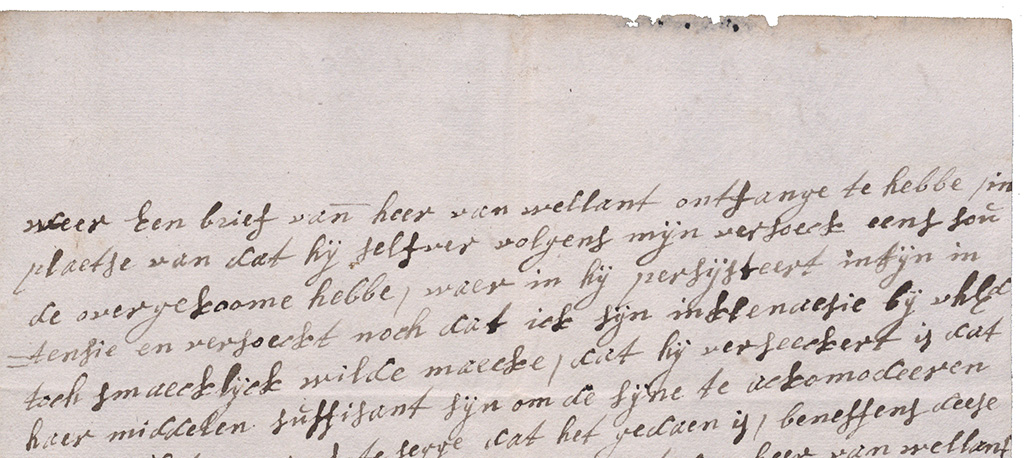 weer Een brief van heer van wellant ontfange te hebbe / in
plaetse van dat hij selfver volgens mijn versoeck eens sou
de overgekoome hebbe / waer in hij persijsteert in sijn in
=tensie en versoeckt noch dat ick sijn inklenaesie bij uhEd
toch smaecklijck wilde maecke / dat hij verseeckert is dat
haer middelen suffisant sijn om de sijne te ackomodeeren
te segge dat het gedaen is / beneffens deese
heer van wellant